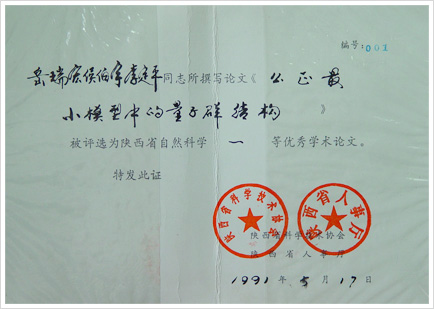 编号:001
岳瑞宏侯伯宇李廷平同志所撰写论文《公正最
小模型中的量子群结构》
被评选为陕西省自然科学一等优秀学术论文。
特发此证
陕西省科学技术协会
陕西省人事厅
陕西省科学技术协会
陕西省人事厅
1991年5月17日